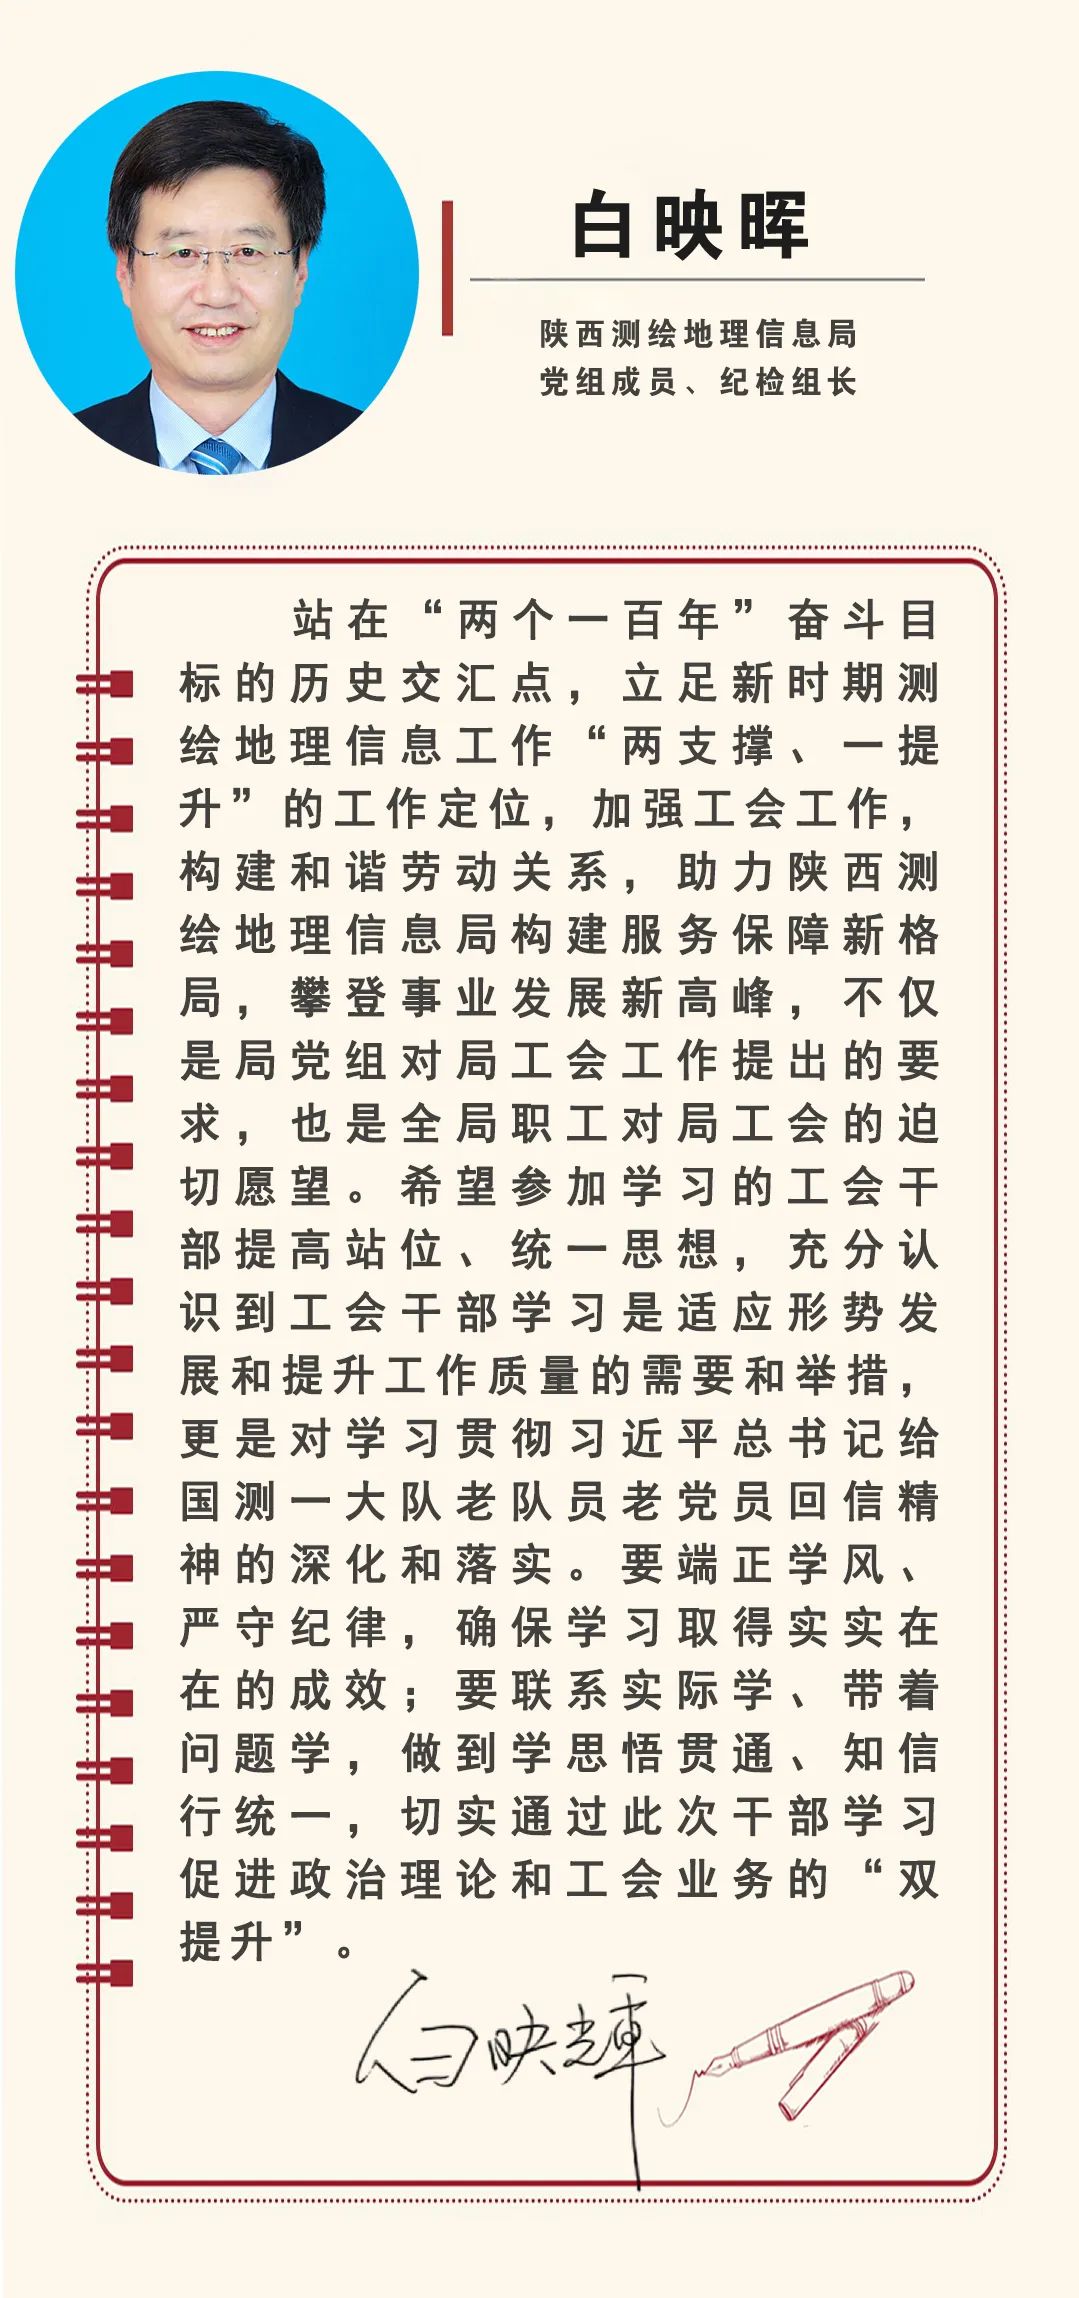 白映晖
陕西测绘地理信息局
党组成员、纪检组长
站在“两个一百年”奋斗目
标的历史交汇点，立足新时期测
绘地理信息工作“两支撑、一提
升”的工作定位，加强工会工作，
构建和谐劳动关系，助力陕西测
绘地理信息局构建服务保障新格
局，攀登事业发展新高峰，不仅
是局党组对局工会工作提出的要
求，也是全局职工对局工会的迫
切愿望。希望参加学习的工会干
部提高站位、统一思想，充分认
识到工会干部学习是适应形势发
展和提升工作质量的需要和举措，
更是对学习贯彻习近平总书记给
国测一大队老队员老党员回信精
神的深化和落实。要端正学风、
严守纪律，确保学习取得实实在
在的成效；要联系实际学、带着
问题学，做到学思悟贯通、知信
行统一，切实通过此次干部学习
促进政治理论和工会业务的“双
提升”。
白映輝